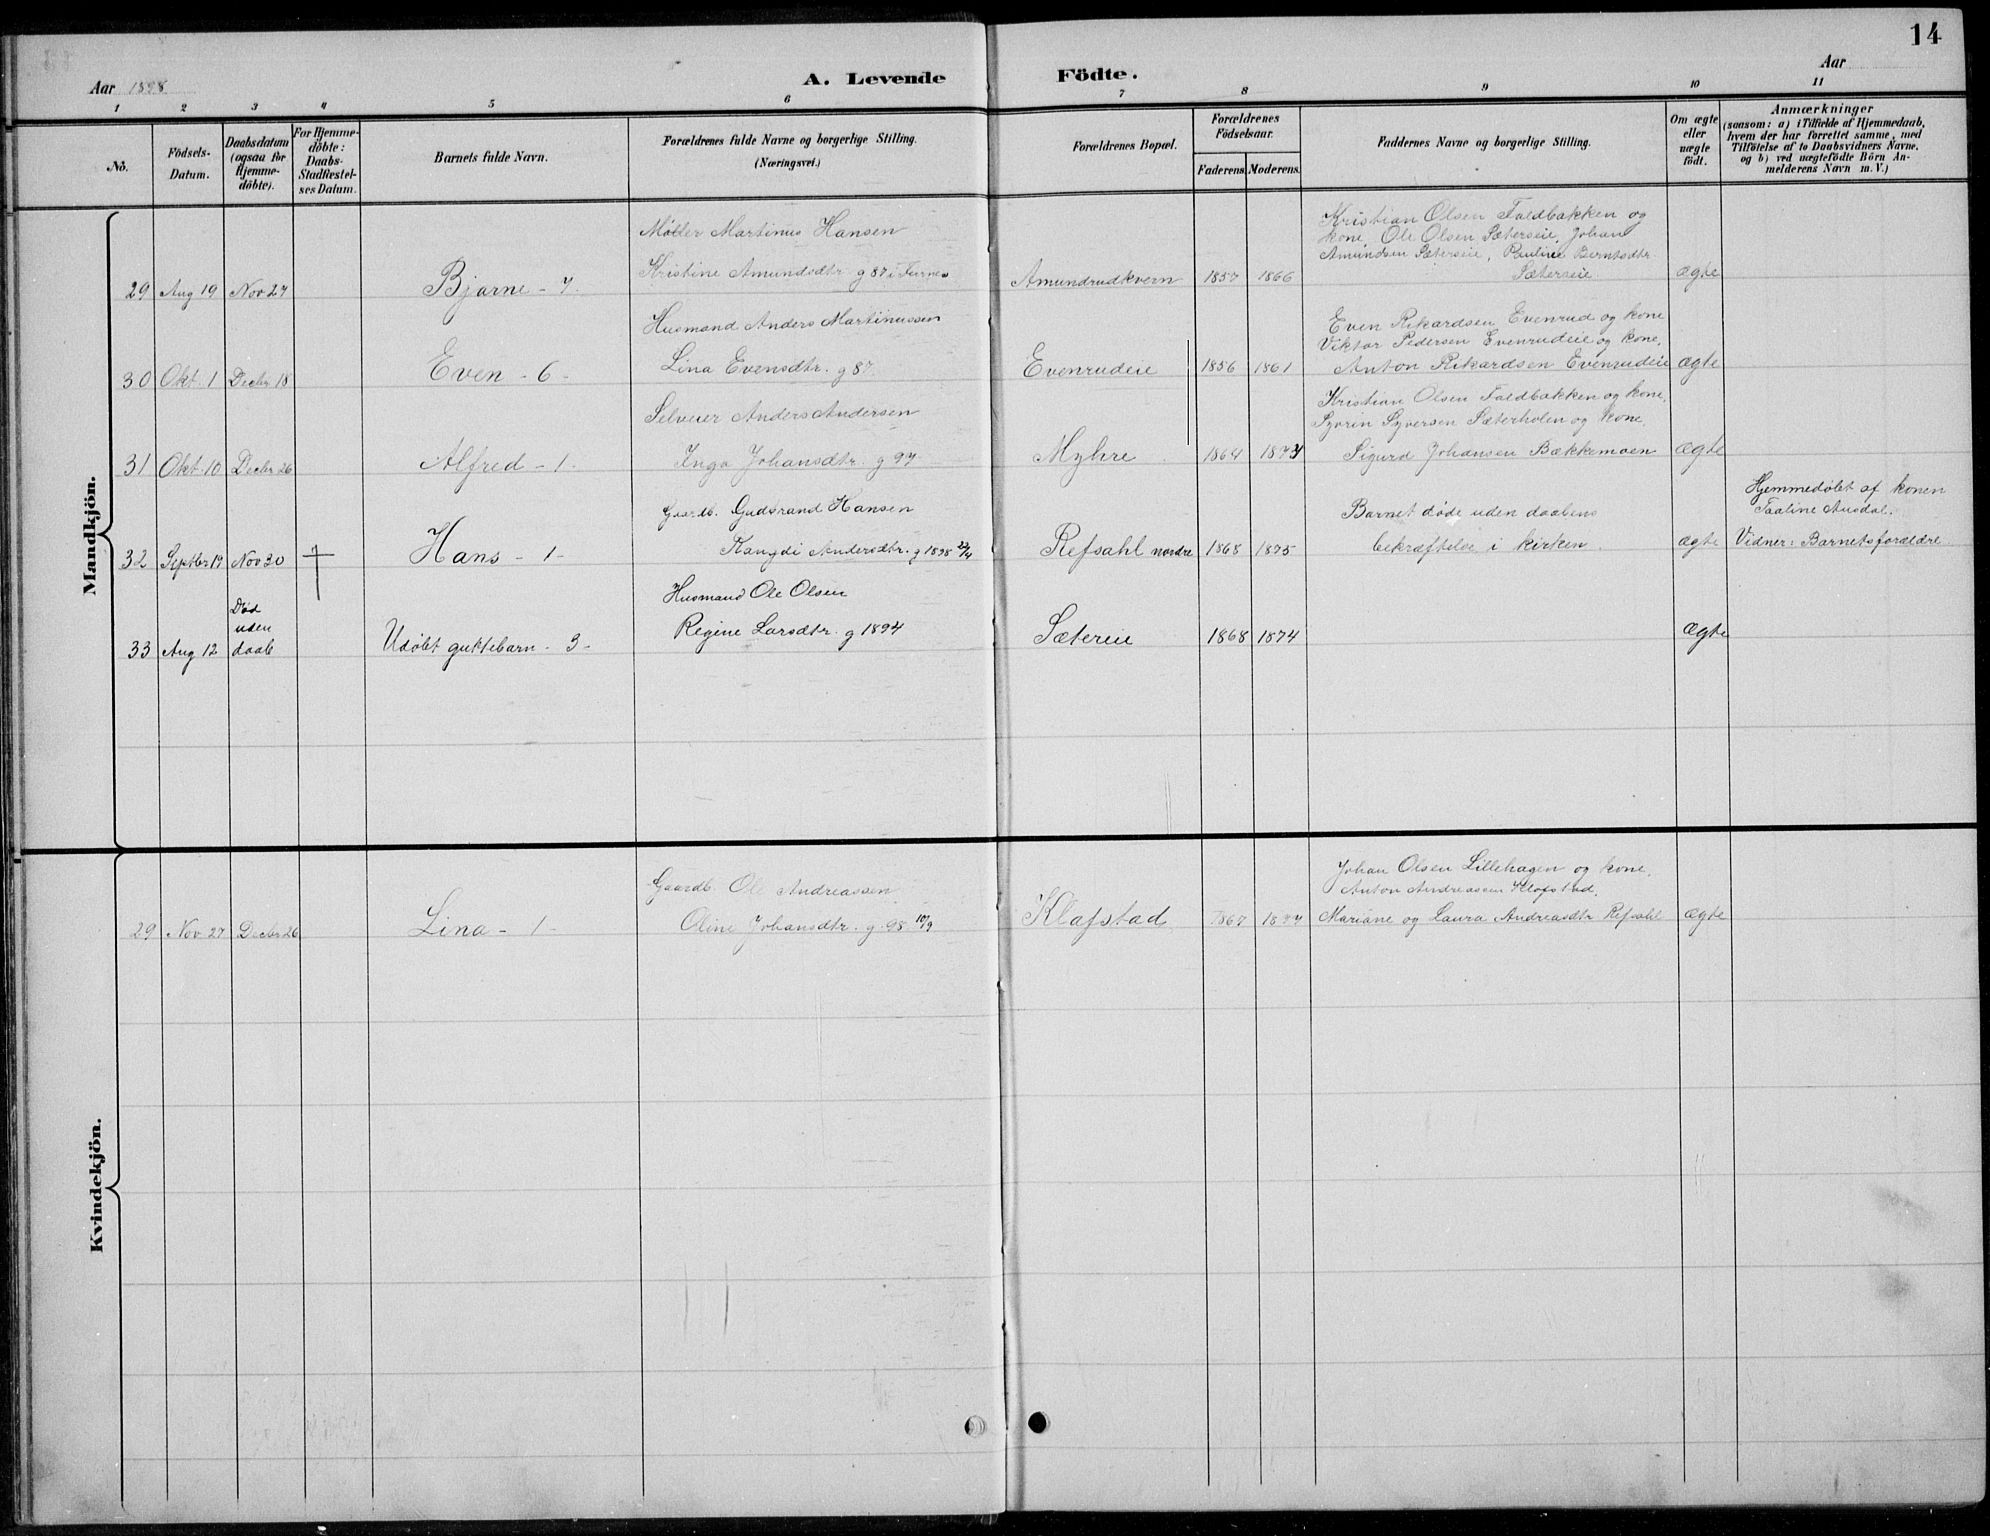 14
Aar 1898
A. Levende Födte.
Aar
1 2 3 4 5 6 7 8 9 10 11
No.
Födsels-Datum.
Daabsdatum (ogsaa för Hjemme-döbte).
For Hjemme-döbte: Daabs-Stadfæstel-ses Datum.
Barnets fulde Navn.
Forældrenes fulde Navne og borgerlige Stilling. (Næringsvei.)
Forældrenes Bopæl.
Forældrenes Födselsaar.
Faderens. Moderens.
Faddernes Navne og borgerlige Stilling.
Om ægte eller uægte födt.
Anmærkninger
(saasom: a) i Tilfælde af Hjemmedaab,
hvem der har forrettet samme, med
Tilföielse af to Daabsvidners Navne.
og b) ved uægtefödte Börn An-
melderens Navn m.V.)
Mandkjön.
Møller Martinus Hansen
Kristian Olsen Faldbakken og
kone, Ole Olsen Sæterseie, Johan
Amundsen Sæterseie, Pauline Berntsdtr
29 Aug 19 Nov 27 Bjarne - 7. Kristine Amundsdtr. g 87 i Furnes Amundrudkvern 1857 1866 Sæterseie ægte
Husmand Anders Martinussen
Even Rikardsen Evenrud og kone
Viktor Pedersen Evenrudeie og kone,
30 Okt. 1 Decbr 18 Even - 6 - Lina Evensdtr. g 87. Evenrudeie 1856 1861 Anton Rikardsen Evenrudeie ægte
Selveier Anders Andersen
Kristian Olsen Faldbakken og kone,
Syver Syversen Sæterholen og kone,
31 Okt. 10 Decbr 26 Alfred - 1 - Inga Johansdtr. g 97. Myhre 1864 1874 Sigurd Johansen Bækkemoen ægte
Gaardb. Gudbrand Hansen
Barnet døde uden daabens
Hjemmedøbt af konen
Taaline Ausdal.
32 Septbr 19 Nov 30 † Hans - 1 - Rangdi Andersdtr. g 1898 22/4 Refsahl nordre 1868 1875 bekræftelse i kirken. ægte Vidner: Barnets forældre
Husmand Ole Olsen
Død
uden
33 Aug 12 daab Udøbt guttebarn - 3 - Regine Larsdtr. g 1894 Sætereie 1868 1874 ægte
Kvindekjön.
Gaardb. Ole Andreassen
Johan Olsen Lillehagen og kone,
Anton Andreassen Klofstad,
29 Nov 27 Decbr 26 Lina - 1 - Oline Johansdtr. g. 98 10/9 Klafstad 1867 1874 Mariane og Laura Andreasdtr Refsahl ægte